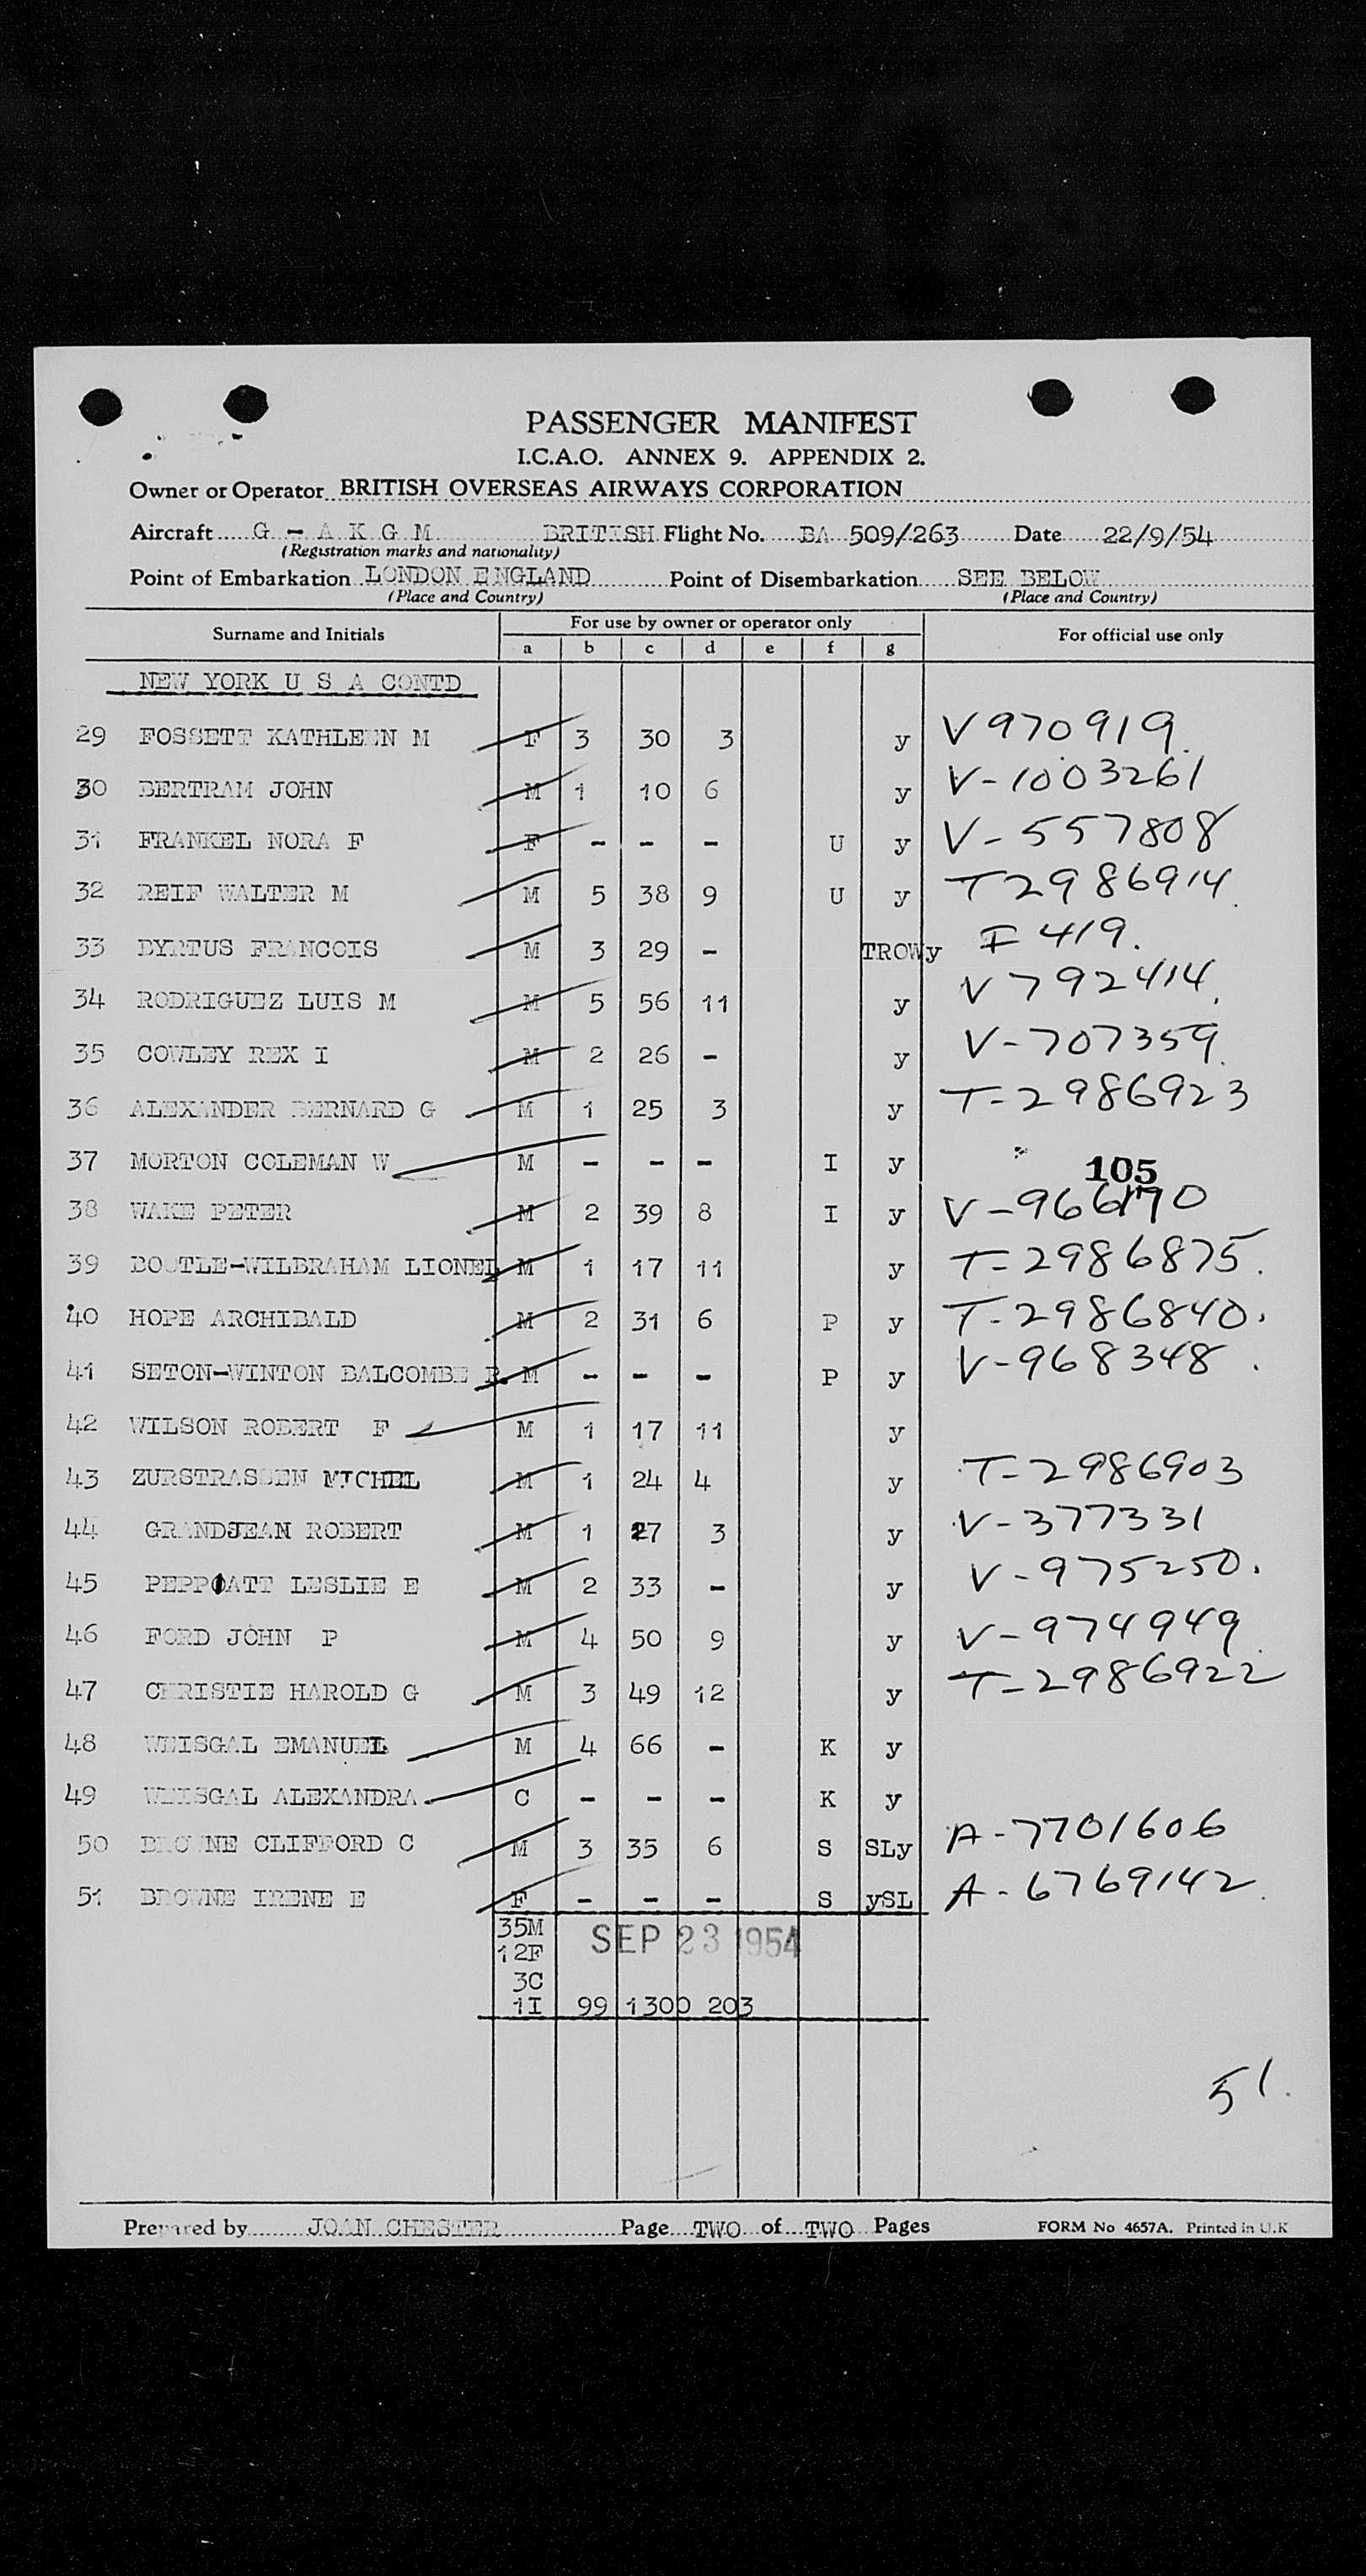 PASSENGER MANIFEST
I.C.A.O. ANNEX 9. APPENDIX 2.
Owner or Operator BRITISH OVERSEAS AIRWAYS CORPORATION
Aircraft G - A K G M BRITISH Flight No. BA 509/263 Date 22/9/54
(Registration marks and nationality)
Point of Embarkation LONDON ENGLAND Point of Disembarkation SEE BELOW
(Place and Country) (Place and Country)
Surname and Initials For use by owner or operator only For official use only
a b c d e f g
NEW YORK U S A CONTD
29 FOSSETT KATHLEEN M F 3 30 3 y V970919.
30 BERTRAM JOHN M 1 10 6 y V-1003261
31 FRANKEL NORA F F - - - U y V-557808
32 REIF WALTER M M 5 38 9 U y T2986914.
33 DYRTUS FRANCOIS M 3 29 - TROWy I 419.
34 RODRIGUEZ LUIS M M 5 56 11 y V792414.
35 COWLEY REX I M 2 26 - y V-707359.
36 ALEXANDER BERNARD G M 1 25 3 y T-2986923
37 MORTON COLEMAN W M - - - I y 105
38 WAKE PETER M 2 39 8 I y V-966190
39 BOOTLE-WILBRAHAM LIONEL M 1 17 11 y T-2986875.
40 HOPE ARCHIBALD M 2 31 6 P y T-2986840.
41 SETON-WINTON BALCOMBE R. M - - - P y V-968348.
42 WILSON ROBERT F M 1 17 11 y
43 ZURSTRASSEN MICHEL M 1 24 4 y T-2986903
44 GRANDJEAN ROBERT M 1 27 3 y V-377331
45 PEPPIATT LESLIE E M 2 33 - y V-975250.
46 FORD JOHN P M 4 50 9 y V-974949.
47 CHRISTIE HAROLD G M 3 49 12 y T-2986922
48 WEISGAL EMANUEL M 4 66 - K y
49 WEISGAL ALEXANDRA C - - - K y
50 BROWNE CLIFFORD C M 3 35 6 S SLy A-7701606
51 BROWNE IRENE E F - - - S ySL A-6769142.
35M SEP 23 1954
12F
3C
1I 99 1300 203
51.
Prepared by JOAN CHESTER Page TWO of TWO Pages FORM No 4657A. Printed in U.K